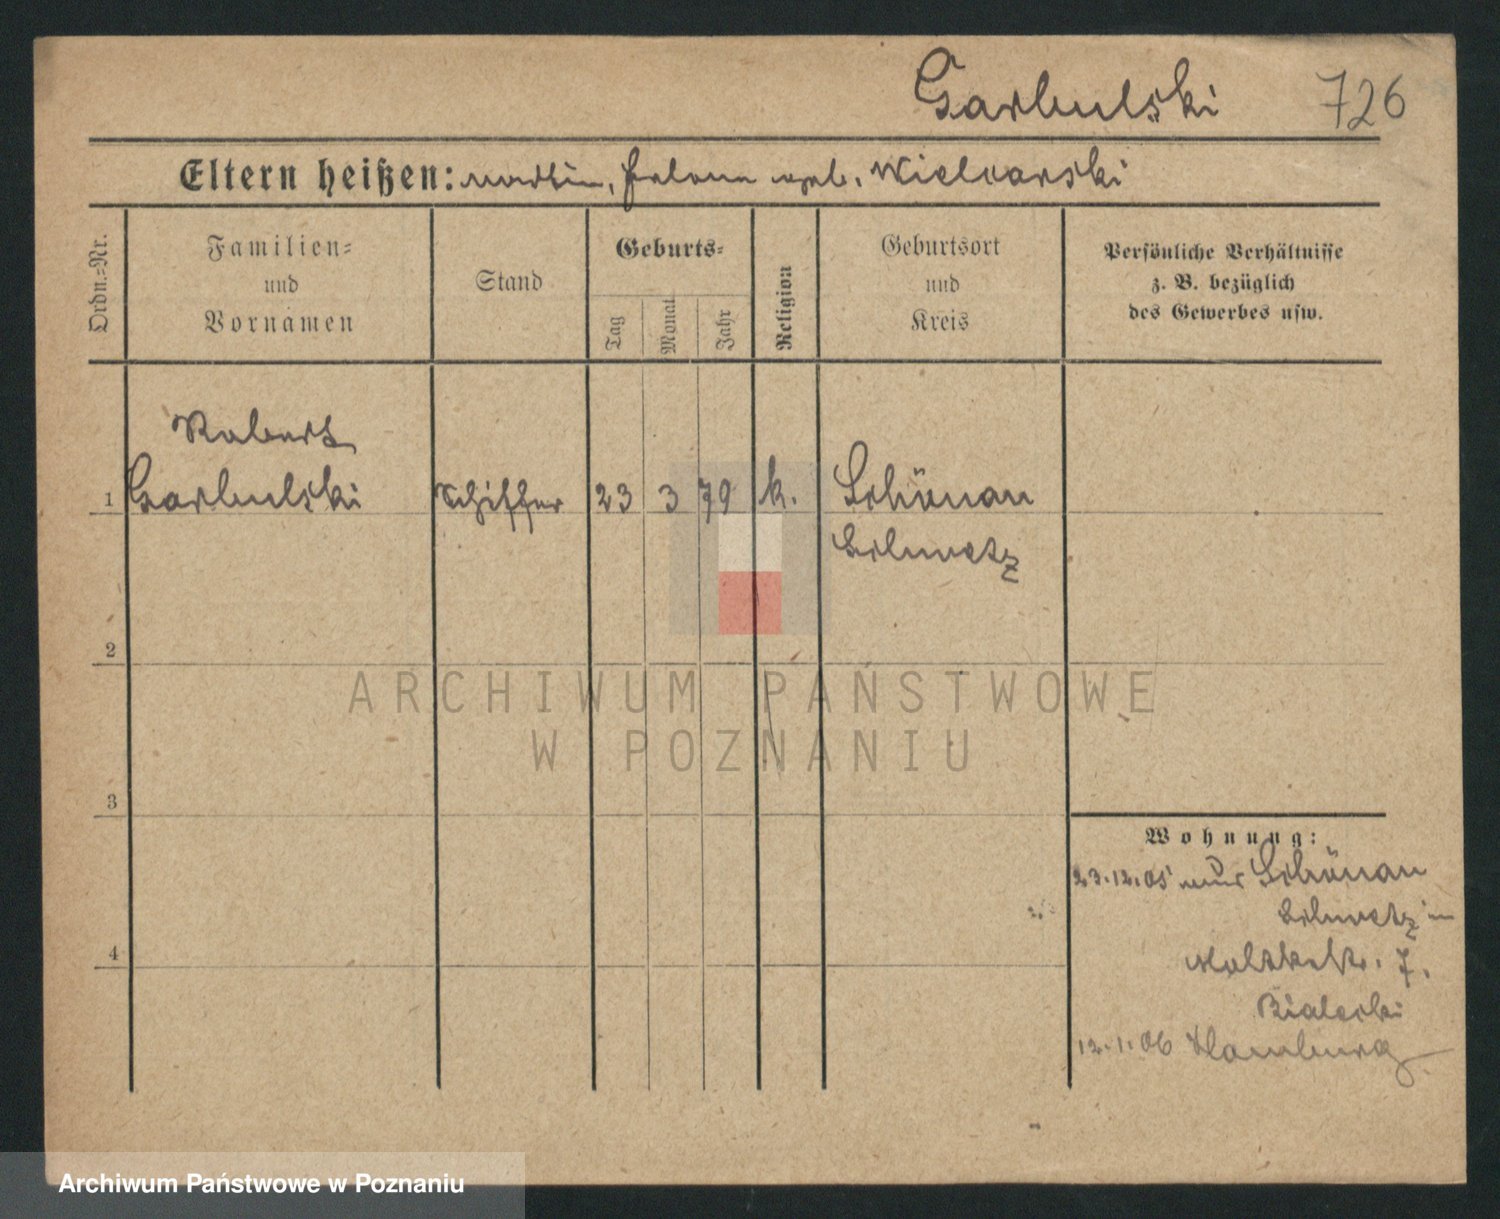 Garbulski 726
Eltern heißen: Martin, Helena geb. Wielvarski
Ordn.=Nr.
Familien=
und
Vornamen
Stand
Geburts=
Tag
Monat
Jahr
Religion
Geburtsort
und
Kreis
Persönliche Verhältnisse
z. B. bezüglich
des Gewerbes usw.
Robert
1 Garbulski Schiffer 23 3 79 k. Schönau
Schwetz
2
ARCHIWUM PAŃSTWOWE
W POZNANIU
3
Wohnung:
23.12.05 aus Schönau
Schwetz in
Moltkestr. 7.
Bialecki
4
12.1.06 Hamburg
Archiwum Państwowe w Poznaniu